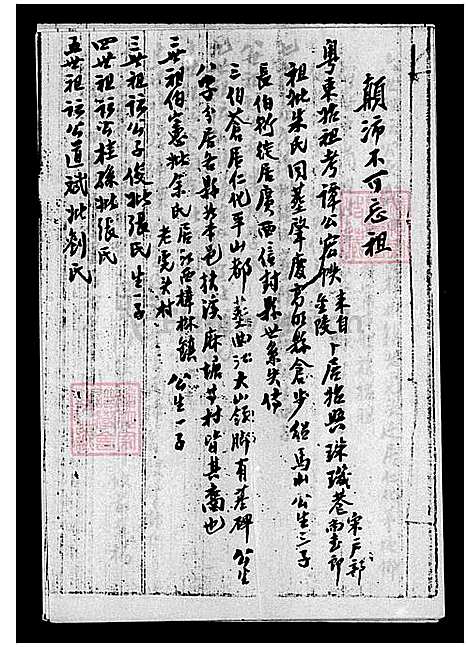 顛沛不可忘祖
粵東始祖考譚公宏帙 來自金陵 卜居始興珠璣巷 宋户部尚書郎
祖妣朱氏同葬肇慶高明縣倉步 馬山公生三子
長伯 徙居廣西信封縣世系失傳
三伯蒼居仁化平山都 葬曲江大山領脚有墓碑 公生
八子分居各縣 本邑扶溪麻塘 村皆其裔也
二世祖伯憲妣余氏居江西樟林鎮 老虎井村 公生一子
三世祖諱公子俊妣張氏生一子
四世祖諱公桂孫妣張氏
五世祖諱公道斌妣劉氏